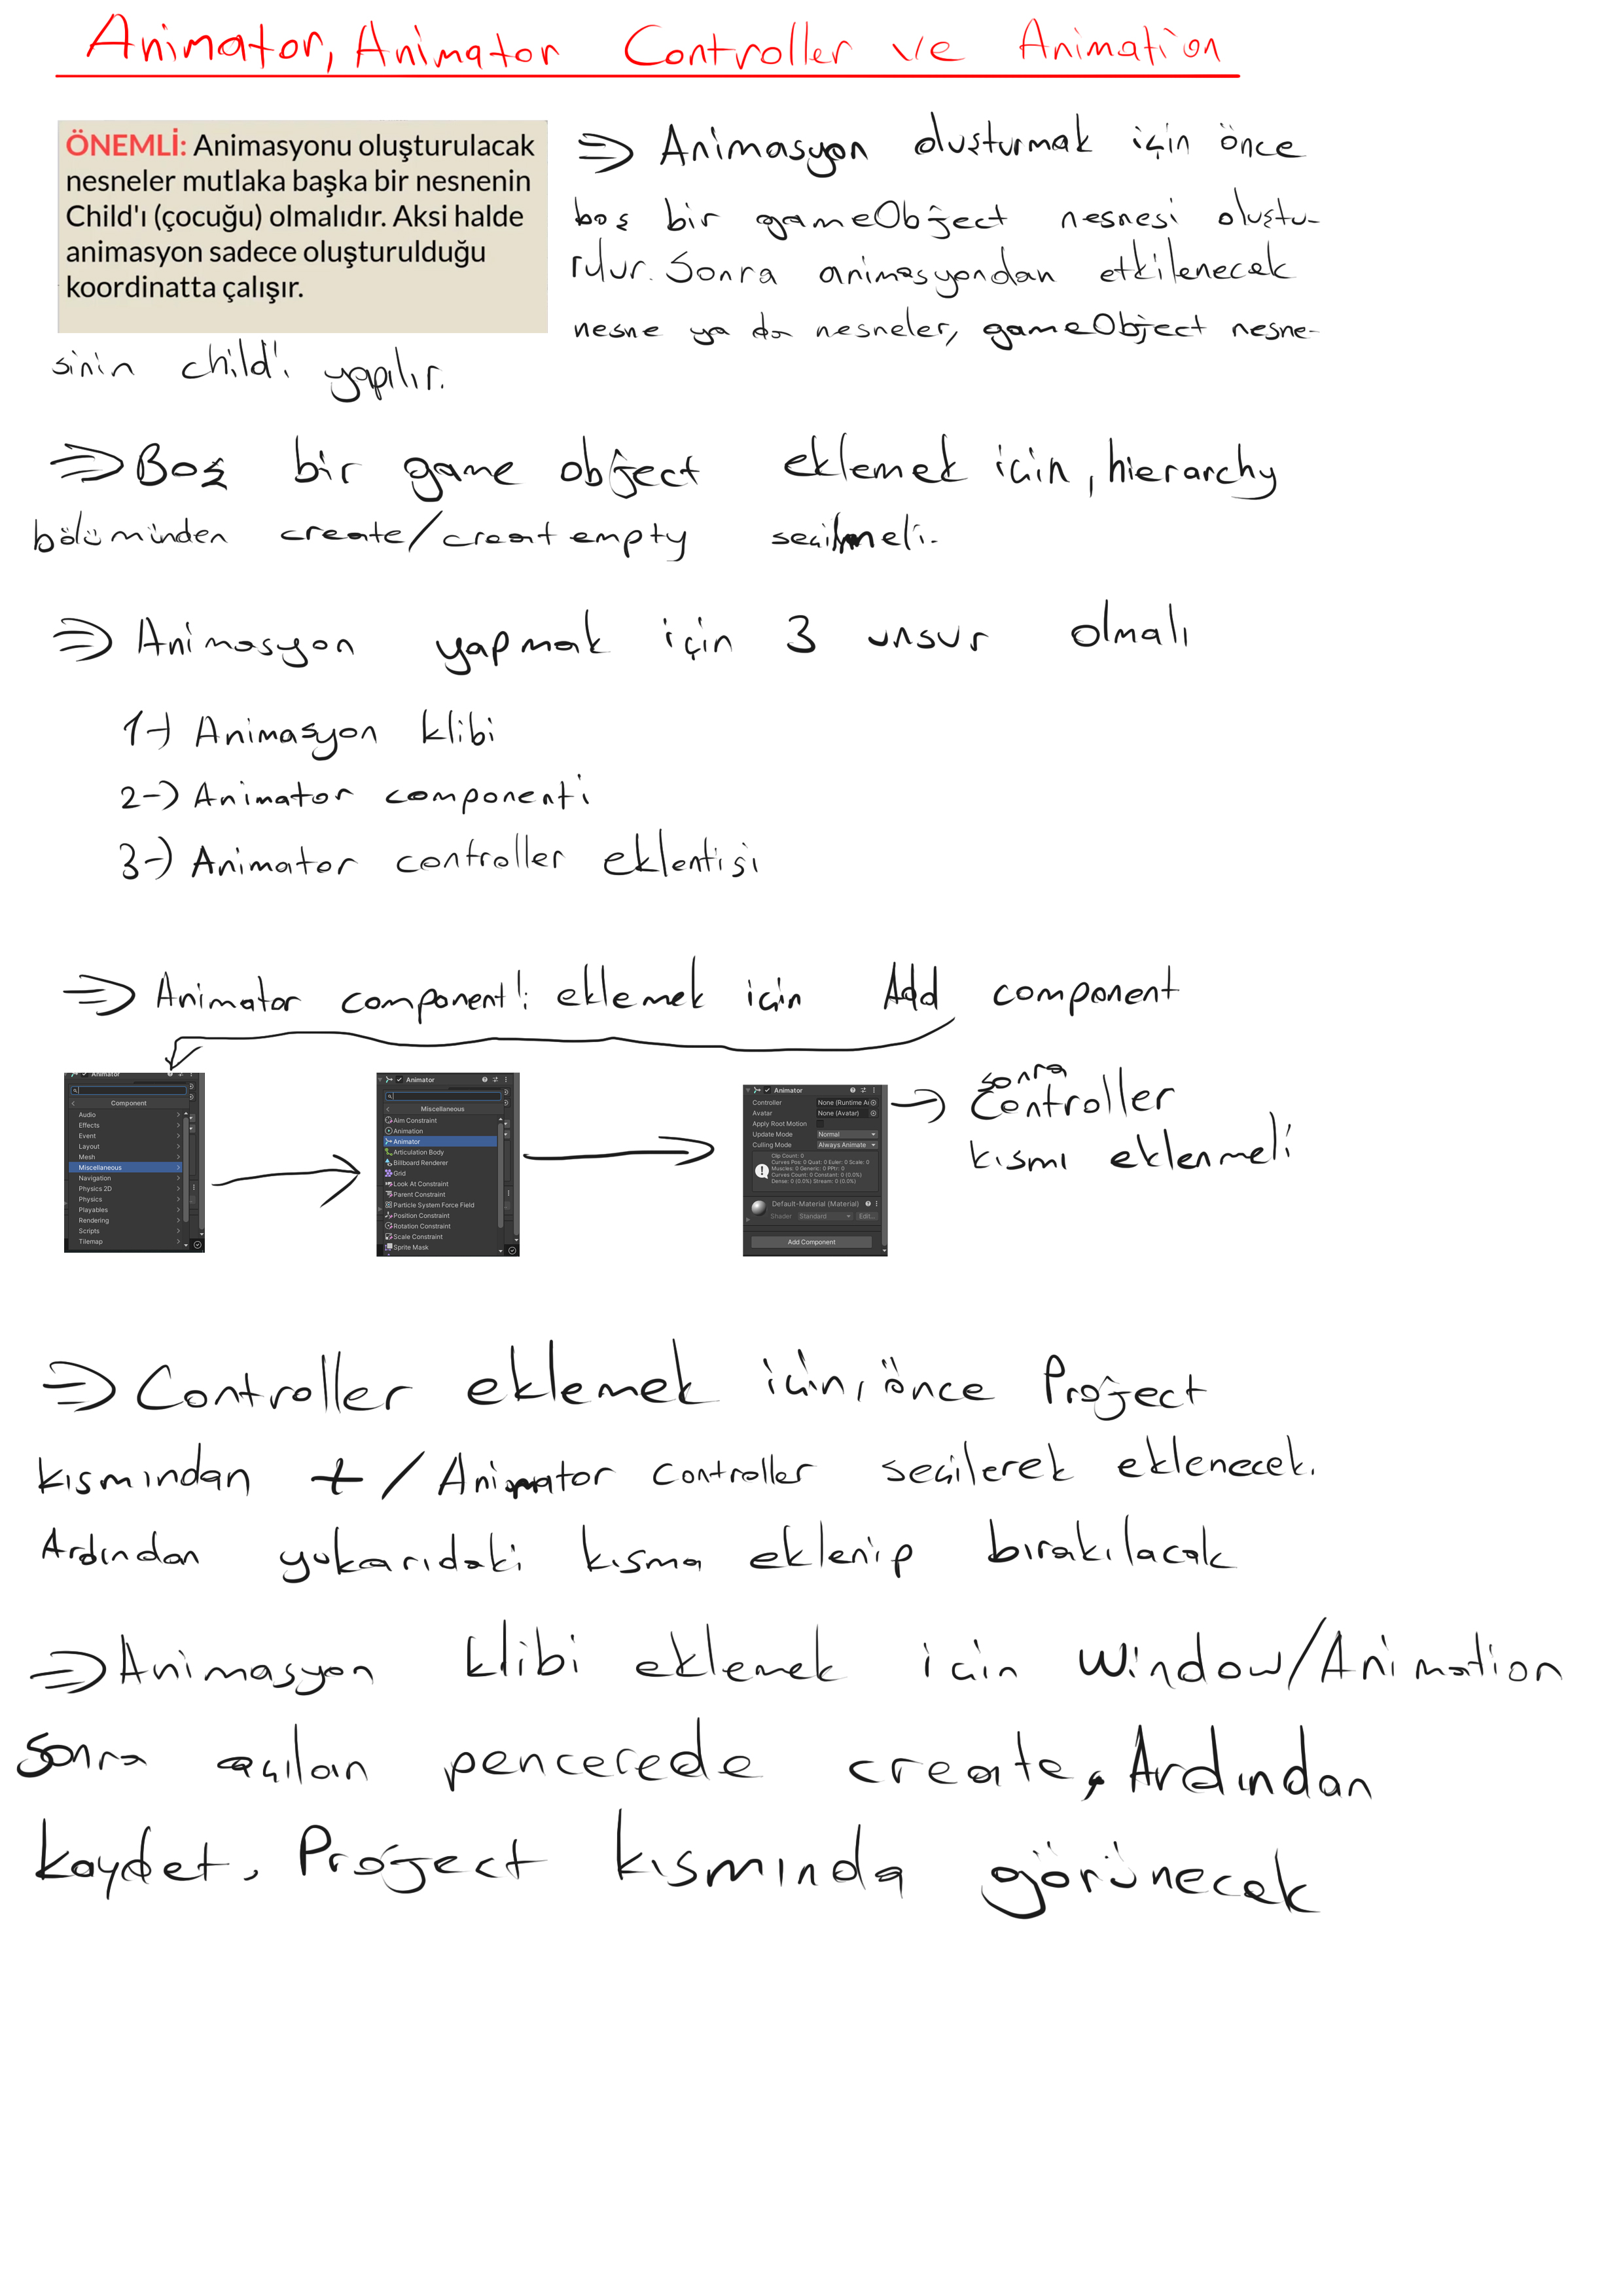 Animator, Animator Controller ve Animation
ÖNEMLİ: Animasyonu oluşturulacak
nesneler mutlaka başka bir nesnenin
Child'ı (çocuğu) olmalıdır. Aksi halde
animasyon sadece oluşturulduğu
koordinatta çalışır.
⇒ Animasyon oluşturmak için önce
boş bir gameObject nesnesi oluştu-
rulur. Sonra animasyondan etkilenecek
nesne ya da nesneler, gameObject nesne-
sinin child'ı yapılır.
⇒ Boş bir game object eklemek için, hierarchy
bölümünden create/creat empty seçilmeli.
⇒ Animasyon yapmak için 3 unsur olmalı
1-) Animasyon klibi
2-) Animator componenti
3-) Animator controller eklentisi
⇒ Animator component'i eklemek için Add component
Animator
Component
Audio
Effects
Event
Layout
Mesh
Miscellaneous
Navigation
Physics 2D
Physics
Playables
Rendering
Scripts
Tilemap
Animator
Miscellaneous
Aim Constraint
Animation
Animator
Articulation Body
Billboard Renderer
Grid
Look At Constraint
Parent Constraint
Particle System Force Field
Position Constraint
Rotation Constraint
Scale Constraint
Sprite Mask
Animator
Controller None (Runtime Ai
Avatar None (Avatar)
Apply Root Motion
Update Mode Normal
Culling Mode Always Animate
Clip Count: 0
Curves Pos: 0 Quat: 0 Euler: 0 Scale: 0
Muscles: 0 Generic: 0 PPtr: 0
Curves Count: 0 Constant: 0 (0.0%)
Dense: 0 (0.0%) Stream: 0 (0.0%)
Default-Material (Material)
Shader Standard Edit...
Add Component
→ sonra
Controller
kısmı eklenmeli
⇒ Controller eklemek için, önce Project
kısmından + / Animator controller seçilerek eklenecek.
Ardından yukarıdaki kısma eklenip bırakılacak
⇒ Animasyon klibi eklemek için Window/Animation
sonra açılan pencerede create, Ardından
kaydet, Project kısmında görünecek